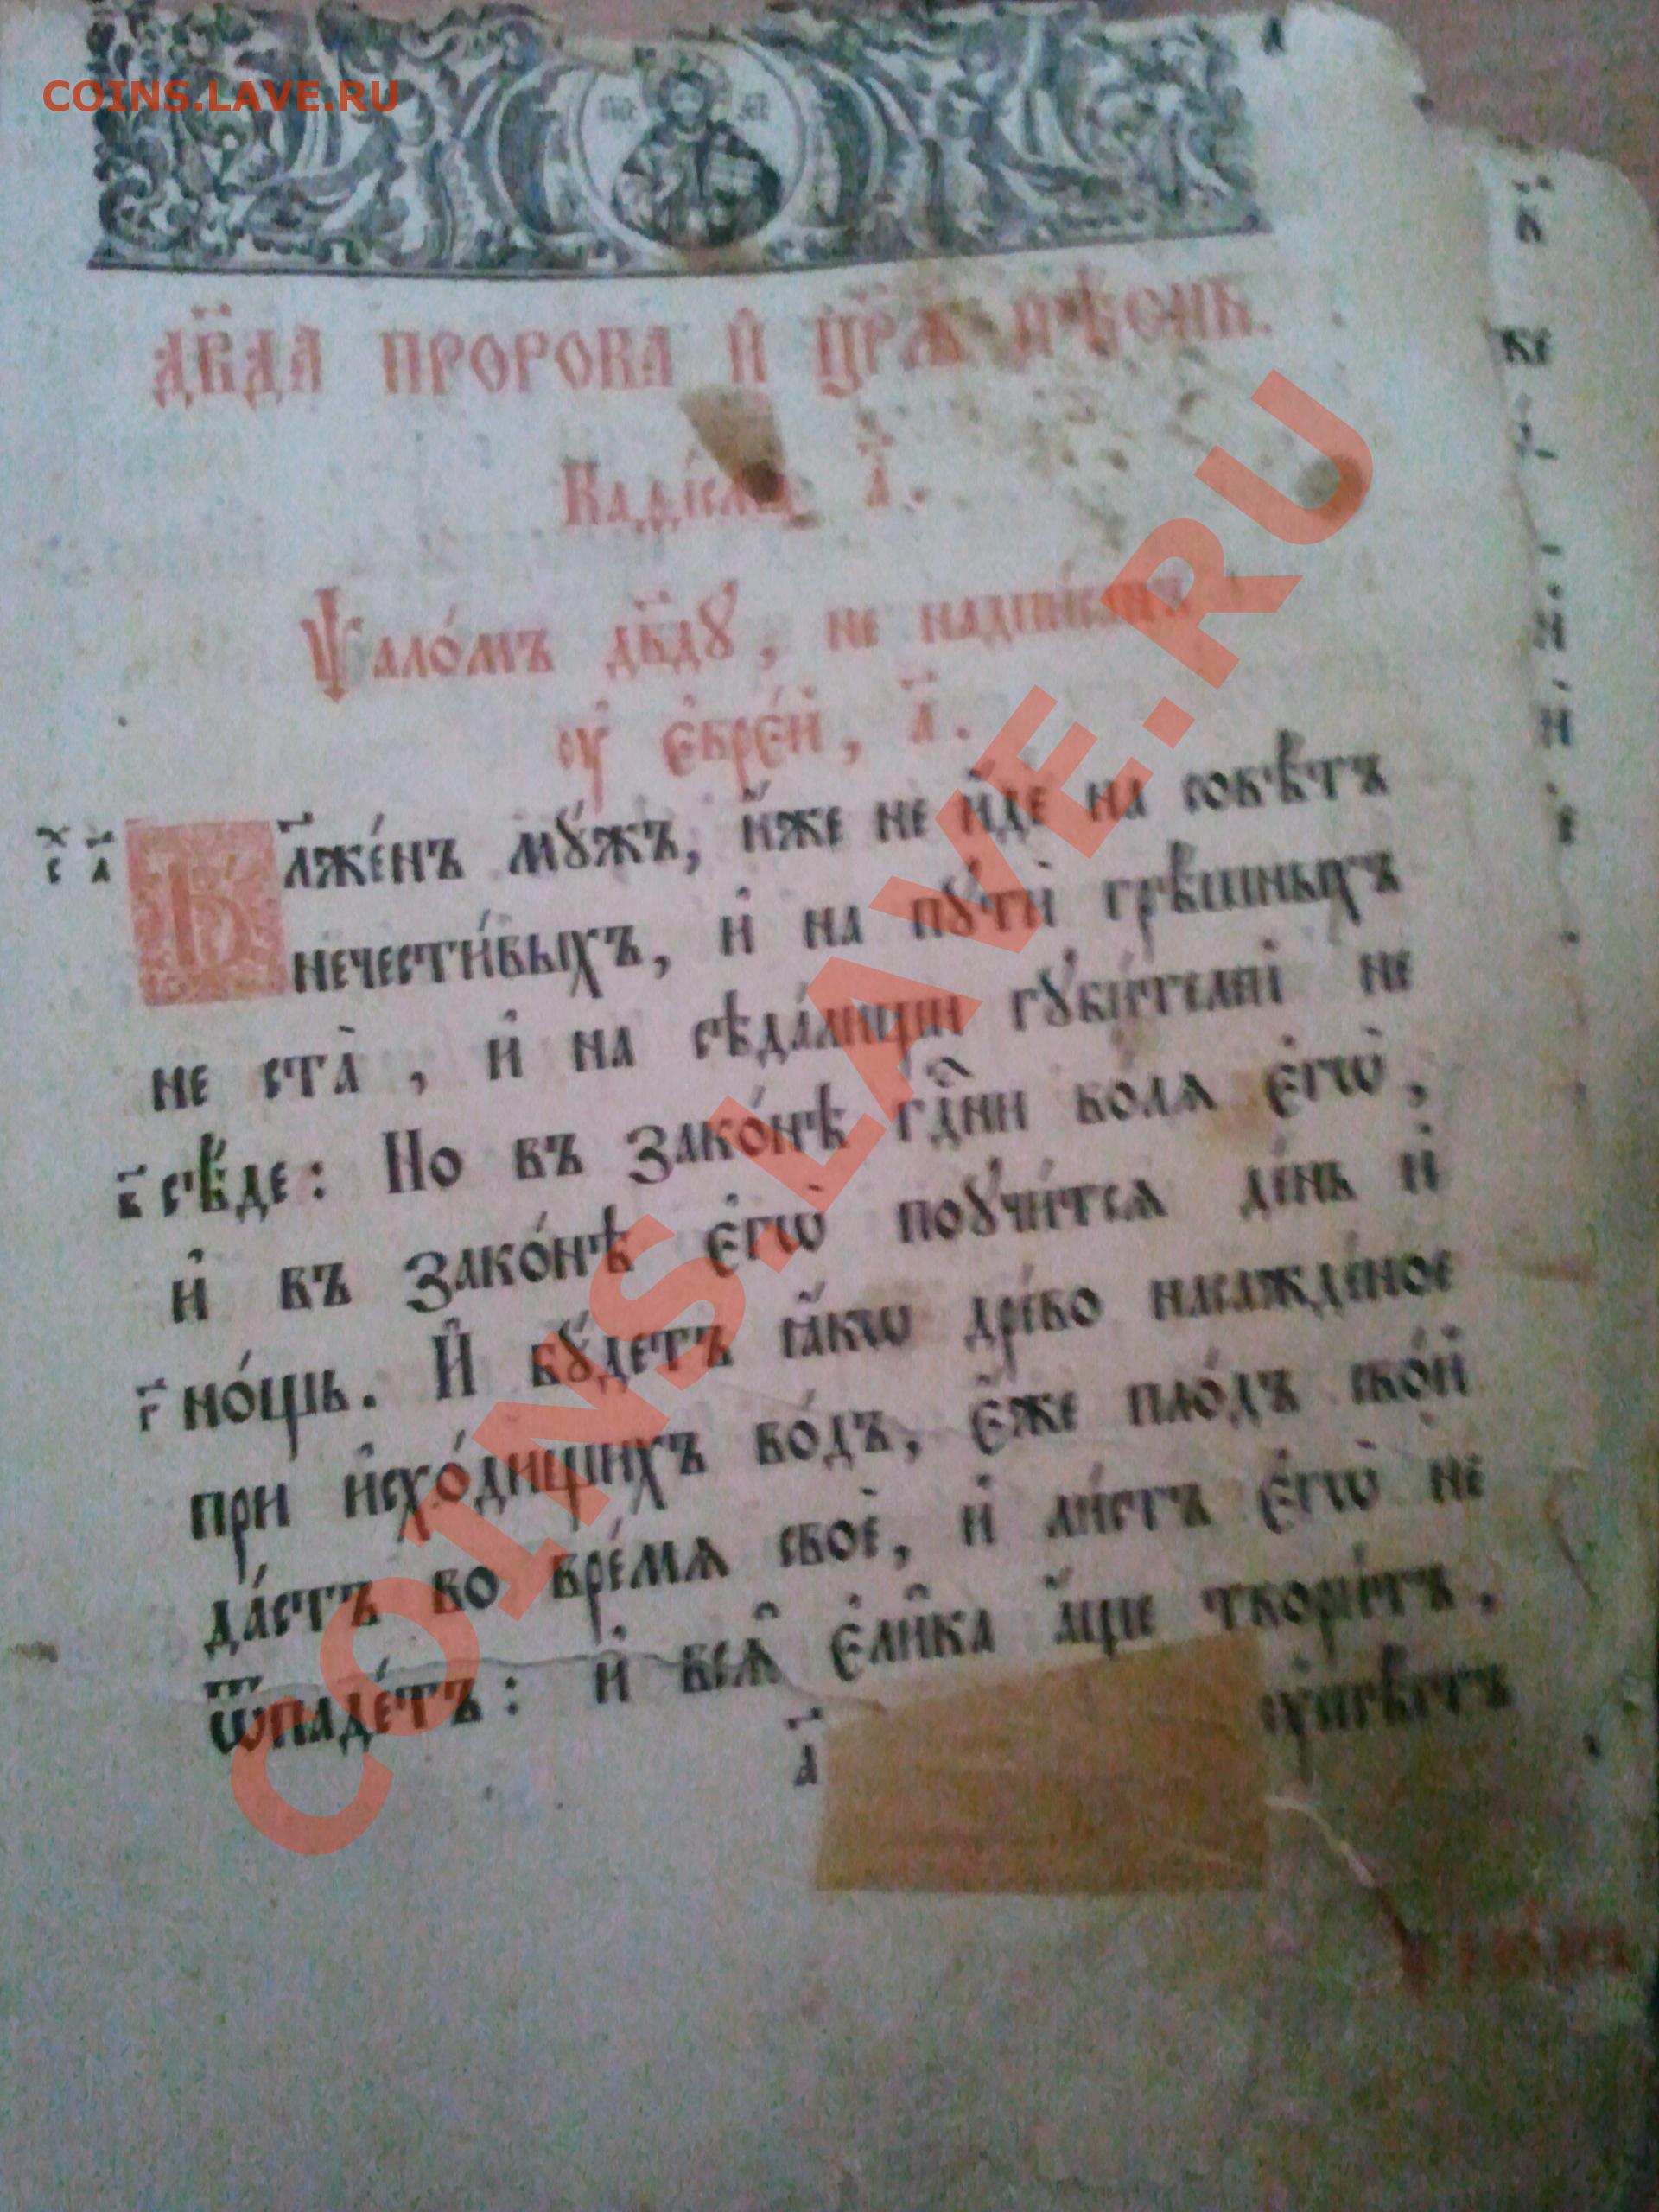 COINS.LAVE.RU
Дв҃да пророка и҆ цр҃ѧ̀ пѣ́снь.
Каѳі́сма а҃.
Ѱало́мъ дв҃дꙋ, не надпи́санъ
ᲂу҆ є҆врє́й, а҃.
Бл҃же́нъ мꙋ́жъ, и҆́же не и҆́де на совѣ́тъ
нечести́выхъ, и҆ на пꙋтѝ грѣ́шныхъ
не ста̀, и҆ на сѣда́лищи гꙋби́телей не
в҃ сѣ́де: Но въ зако́нѣ гдⷭ҇ни во́лѧ є҆гѡ̀,
и҆ въ зако́нѣ є҆гѡ̀ поꙋчи́тсѧ де́нь и҆
г҃ но́щь. И҆ бꙋ́детъ ꙗ҆́кѡ дре́во насажде́ное
при и҆схо́дищихъ во́дъ, є҆́же пло́дъ сво́й
да́стъ во вре́мѧ своѐ, и҆ ли́стъ є҆гѡ̀ не
ѿпаде́тъ: и҆ всѧ̑ є҆ли̑ка а҆́ще твори́тъ,
а҃ ᲂу҆спѣ́етъ
COINS.LAVE.RU